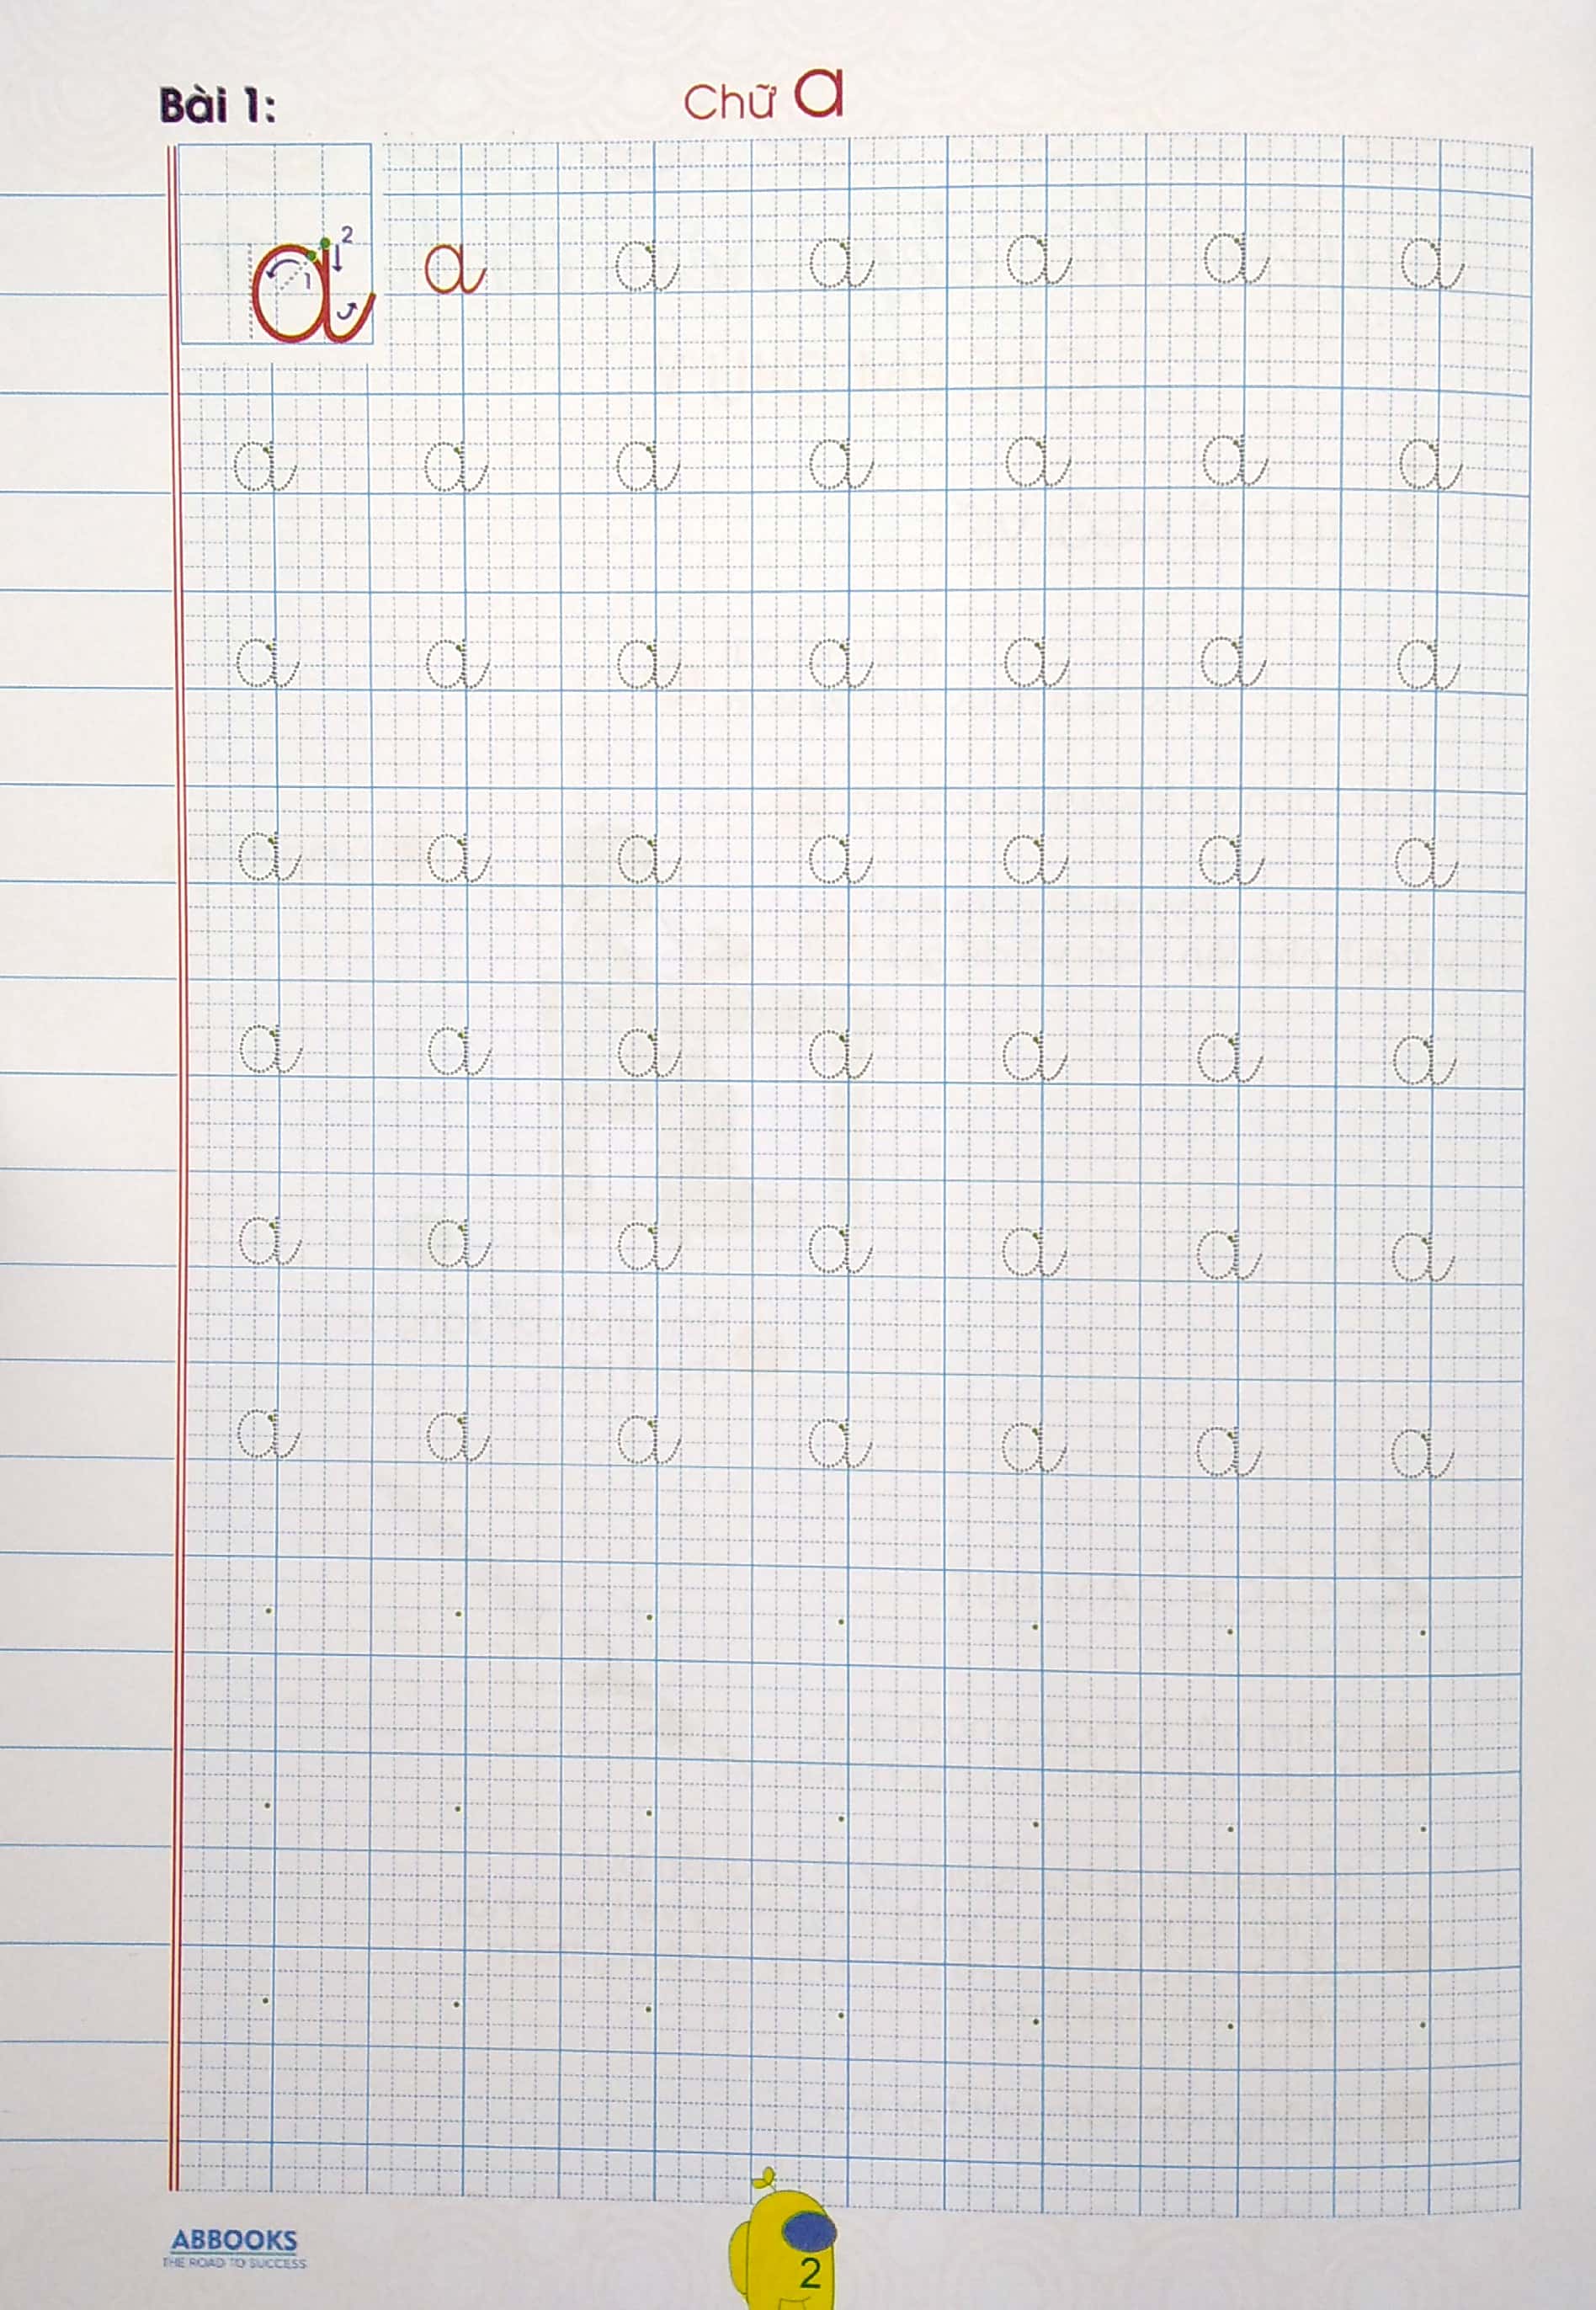 Bài 1:
Chữ a
1 2
a a a a a a
a a a a a a a
a a a a a a a
a a a a a a a
a a a a a a a
a a a a a a a
a a a a a a a
ABBOOKS
THE ROAD TO SUCCESS
2